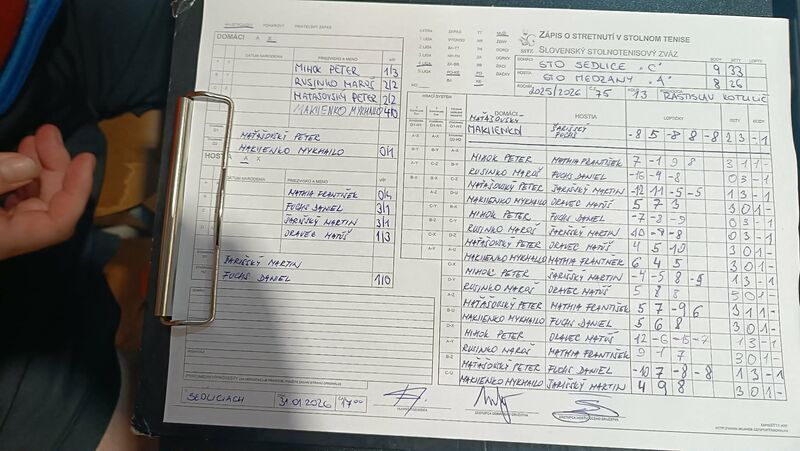 MAJSTROVSKÝ POHÁROVÝ PRIATEĽSKÝ ZÁPAS
DOMÁCI A X
DÁTUM NARODENIA PRIEZVISKO A MENO V/P
MIHOK PETER 1/3
RUSINKO MAROŠ 2/2
MATAŠOVSKÝ PETER 2/2
MAKIIENKO MYKHAILO 4/0
MAŤAŠOVSKÝ PETER
MAKIIENKO MYKHAILO 0/1
HOSTIA A X
DÁTUM NARODENIA PRIEZVISKO A MENO V/P
MATHIA FRANTIŠEK 0/4
FUCHS DANIEL 3/1
ŠARIŠSKÝ MARTIN 3/1
ORAVEC MATÚŠ 1/3
ŠARIŠSKÝ MARTIN
FUCHS DANIEL 1/0
SEDLICIACH 31.01.2026 17:00
ZÁPIS O STRETNUTÍ V STOLNOM TENISE
SLOVENSKÝ STOLNOTENISOVÝ ZVÄZ
DOMÁCI STO SEDLICE "C" 9 33
HOSTIA STO MEDZANY "A" 8 26
2025/2026 75 13 RASTISLAV KOTULIČ
HRACÍ SYSTÉM DOMÁCI HOSTIA LOPTIČKY SETY BODY
MAŤAŠOVSKÝ ŠARIŠSKÝ
MAKIIENKO FUCHS -8 5 -8 8 -8 2 3 - 1
MIHOK PETER MATHIA FRANTIŠEK 7 -1 9 8 3 1 1 -
RUSINKO MAROŠ FUCHS DANIEL -16 -9 -8 0 3 - 1
MAŤAŠOVSKÝ PETER ŠARIŠSKÝ MARTIN -12 11 -5 -5 1 3 - 1
MAKIIENKO MYKHAILO ORAVEC MATÚŠ 5 7 3 3 0 1 -
MIHOK PETER FUCHS DANIEL -7 -8 -9 0 3 - 1
RUSINKO MAROŠ ŠARIŠSKÝ MARTIN -10 -9 -8 0 3 - 1
MAŤAŠOVSKÝ PETER ORAVEC MATÚŠ 4 5 10 3 0 1 -
MAKIIENKO MYKHAILO MATHIA FRANTIŠEK 6 4 5 3 0 1 -
MIHOK PETER ŠARIŠSKÝ MARTIN -4 -5 8 -9 1 3 - 1
RUSINKO MAROŠ ORAVEC MATÚŠ 5 8 8 3 0 1 -
MAŤAŠOVSKÝ PETER MATHIA FRANTIŠEK 5 7 -9 6 3 1 1 -
MAKIIENKO MYKHAILO FUCHS DANIEL 5 6 8 3 0 1 -
MIHOK PETER ORAVEC MATÚŠ 12 -6 -15 -7 1 3 - 1
RUSINKO MAROŠ MATHIA FRANTIŠEK 9 1 7 3 0 1 -
MAŤAŠOVSKÝ PETER FUCHS DANIEL -10 7 -8 -8 1 3 - 1
MAKIIENKO MYKHAILO ŠARIŠSKÝ MARTIN 4 9 8 3 0 1 -